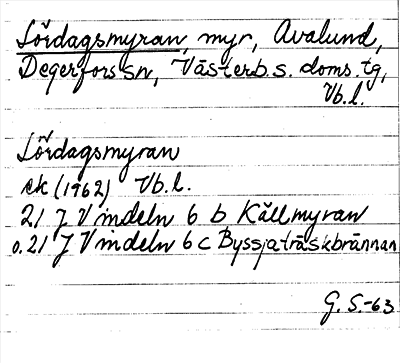 Lördagsmyran, myr, Avalund,
Degerfors sn, Västerb. s. doms. tg,
Vb.l.
Lördagsmyran
ek (1962) Vb.l.
21 J Vindeln 6 b Källmyran
o. 21 J Vindeln 6 c Byssjaträskbrännan
G. S.-63